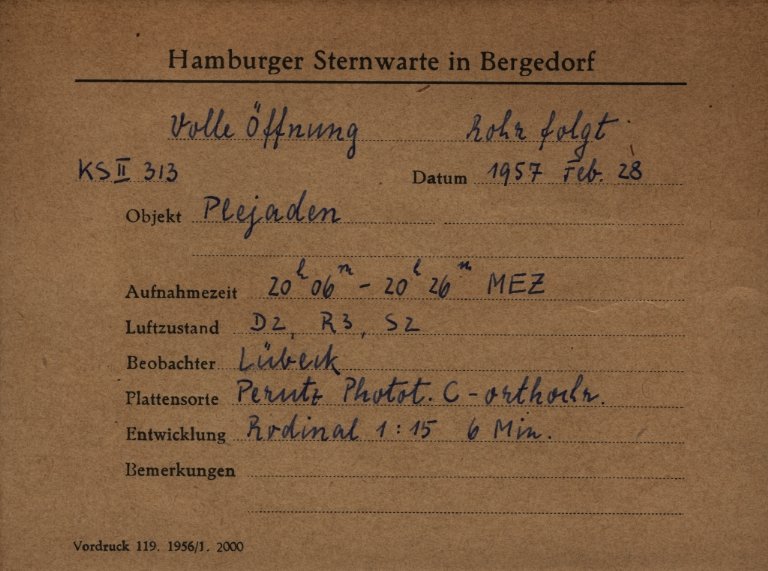 Hamburger Sternwarte in Bergedorf
Volle Öffnung Rohr folgt
KS II 313 Datum 1957 Feb. 28
Objekt Plejaden
Aufnahmezeit 20h 06m - 20h 26m MEZ
Luftzustand D2, R3, S2
Beobachter Lübeck
Plattensorte Perutz Photot. C-orthochr.
Entwicklung Rodinal 1:15 6 Min.
Bemerkungen
Vordruck 119. 1956/1. 2000